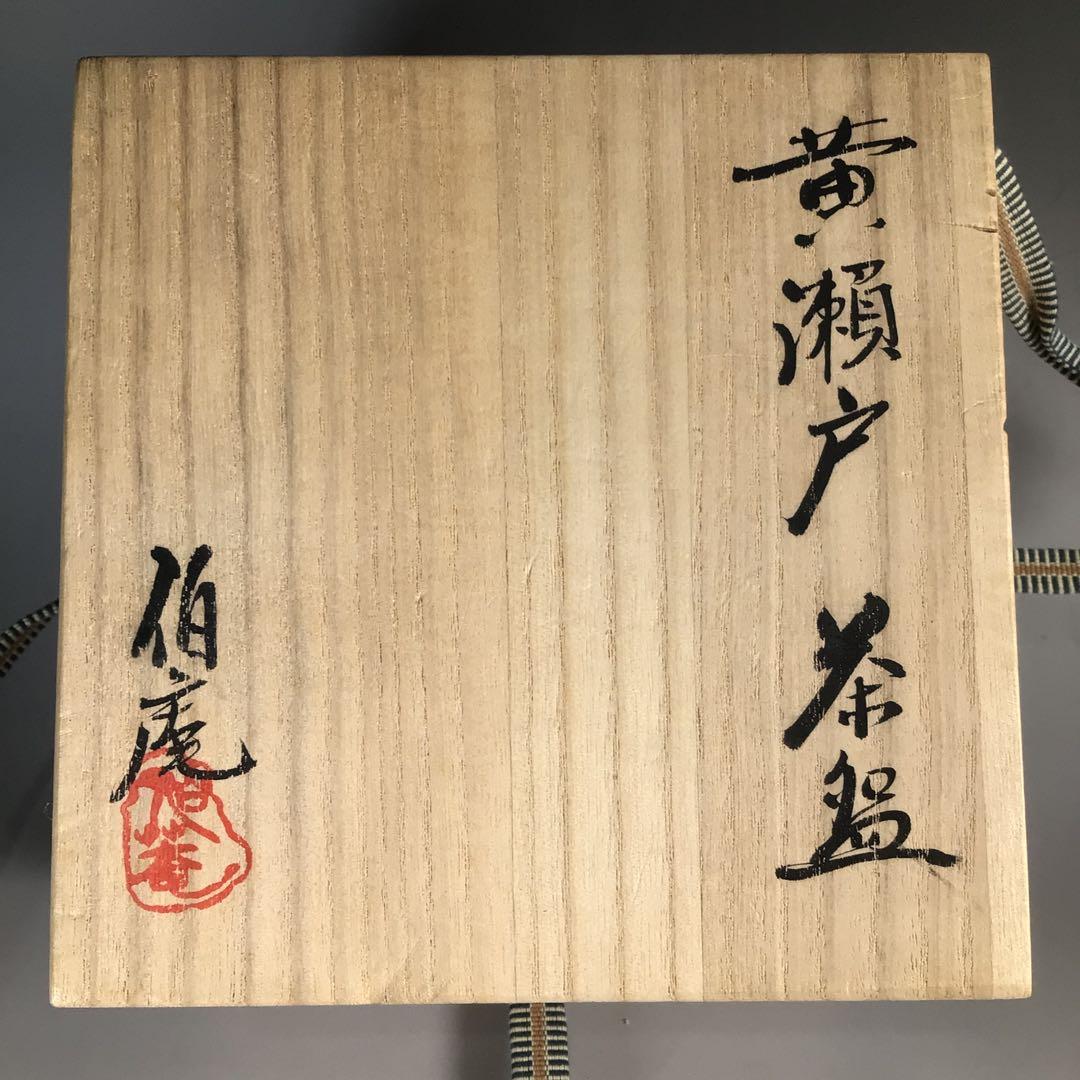 黄瀬戸 茶盌
伯庵